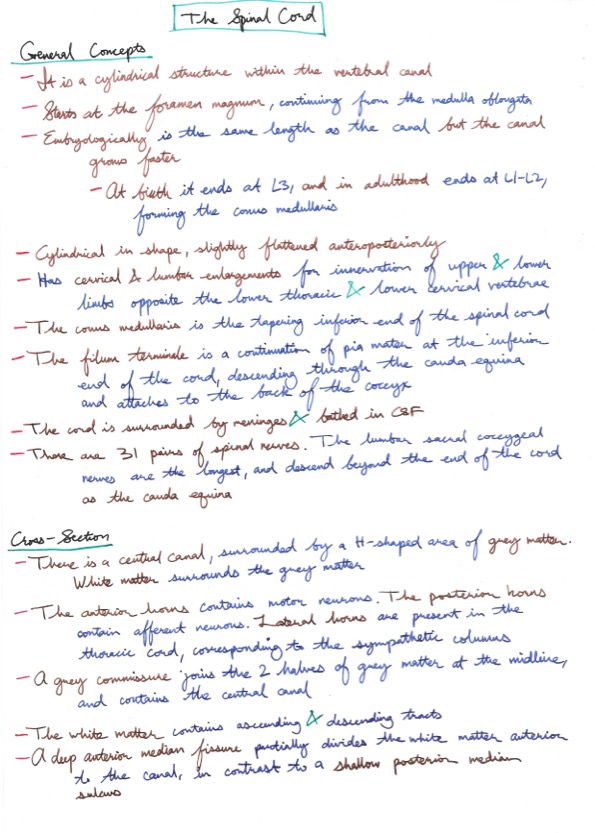 The Spinal Cord
General Concepts
- It is a cylindrical structure within the vertebral canal
- Starts at the foramen magnum, continuing from the medulla oblongata
- Embryologically is the same length as the canal but the canal
grows faster
- At birth it ends at L3, and in adulthood ends at L1-L2,
forming the conus medullaris
- Cylindrical in shape, slightly flattened anteroposteriorly
- Has cervical & lumbar enlargements for innervation of upper & lower
limbs opposite the lower thoracic & lower cervical vertebrae
- The conus medullaris is the tapering inferior end of the spinal cord
- The filum terminale is a continuation of pia mater at the inferior
end of the cord, descending through the cauda equina
and attaches to the back of the coccyx
- The cord is surrounded by meninges & bathed in CSF
- There are 31 pairs of spinal nerves. The lumbar sacral coccygeal
nerves are the longest, and descend beyond the end of the cord
as the cauda equina
Cross-Section
- There is a central canal, surrounded by a H-shaped area of grey matter.
White matter surrounds the grey matter
- The anterior horns contains motor neurons. The posterior horns
contain afferent neurons. Lateral horns are present in the
thoracic cord, corresponding to the sympathetic columns
- A grey commissure joins the 2 halves of grey matter at the midline,
and contains the central canal
- The white matter contains ascending & descending tracts
- A deep anterior median fissure partially divides the white matter anterior
to the canal, in contrast to a shallow posterior median
sulcus